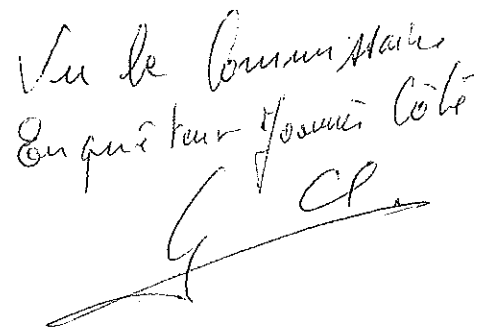 Vu le Commissaire
Enquêteur Yoannès Côté